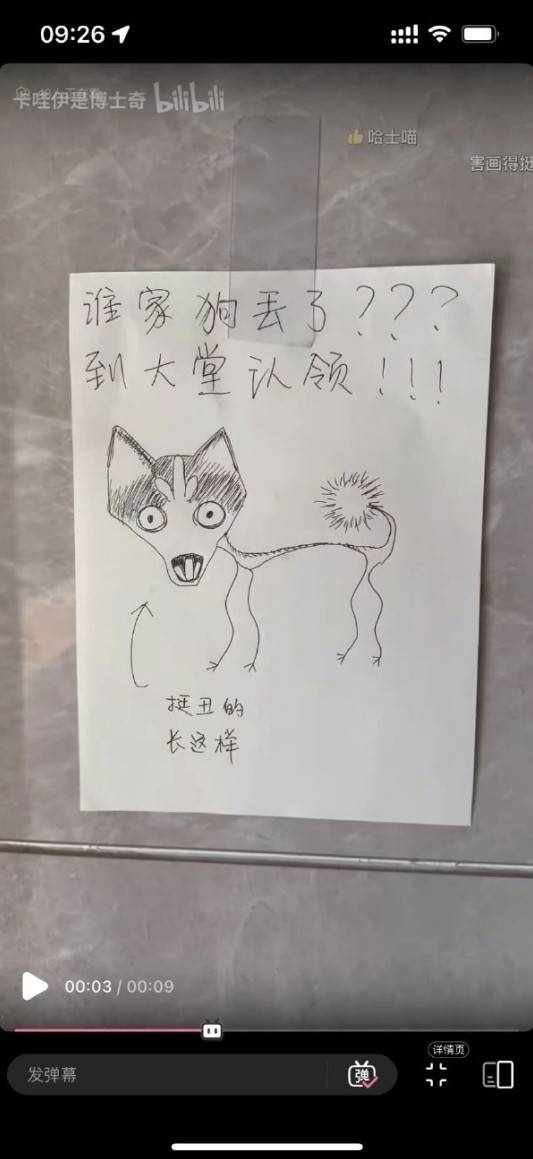 09:26
卡哇伊是博士奇 bilibili
哈士喵
害画得挺
谁家狗丢了???
到大堂认领!!!
挺丑的
长这样
00:03 / 00:09
详情页
发弹幕
弹